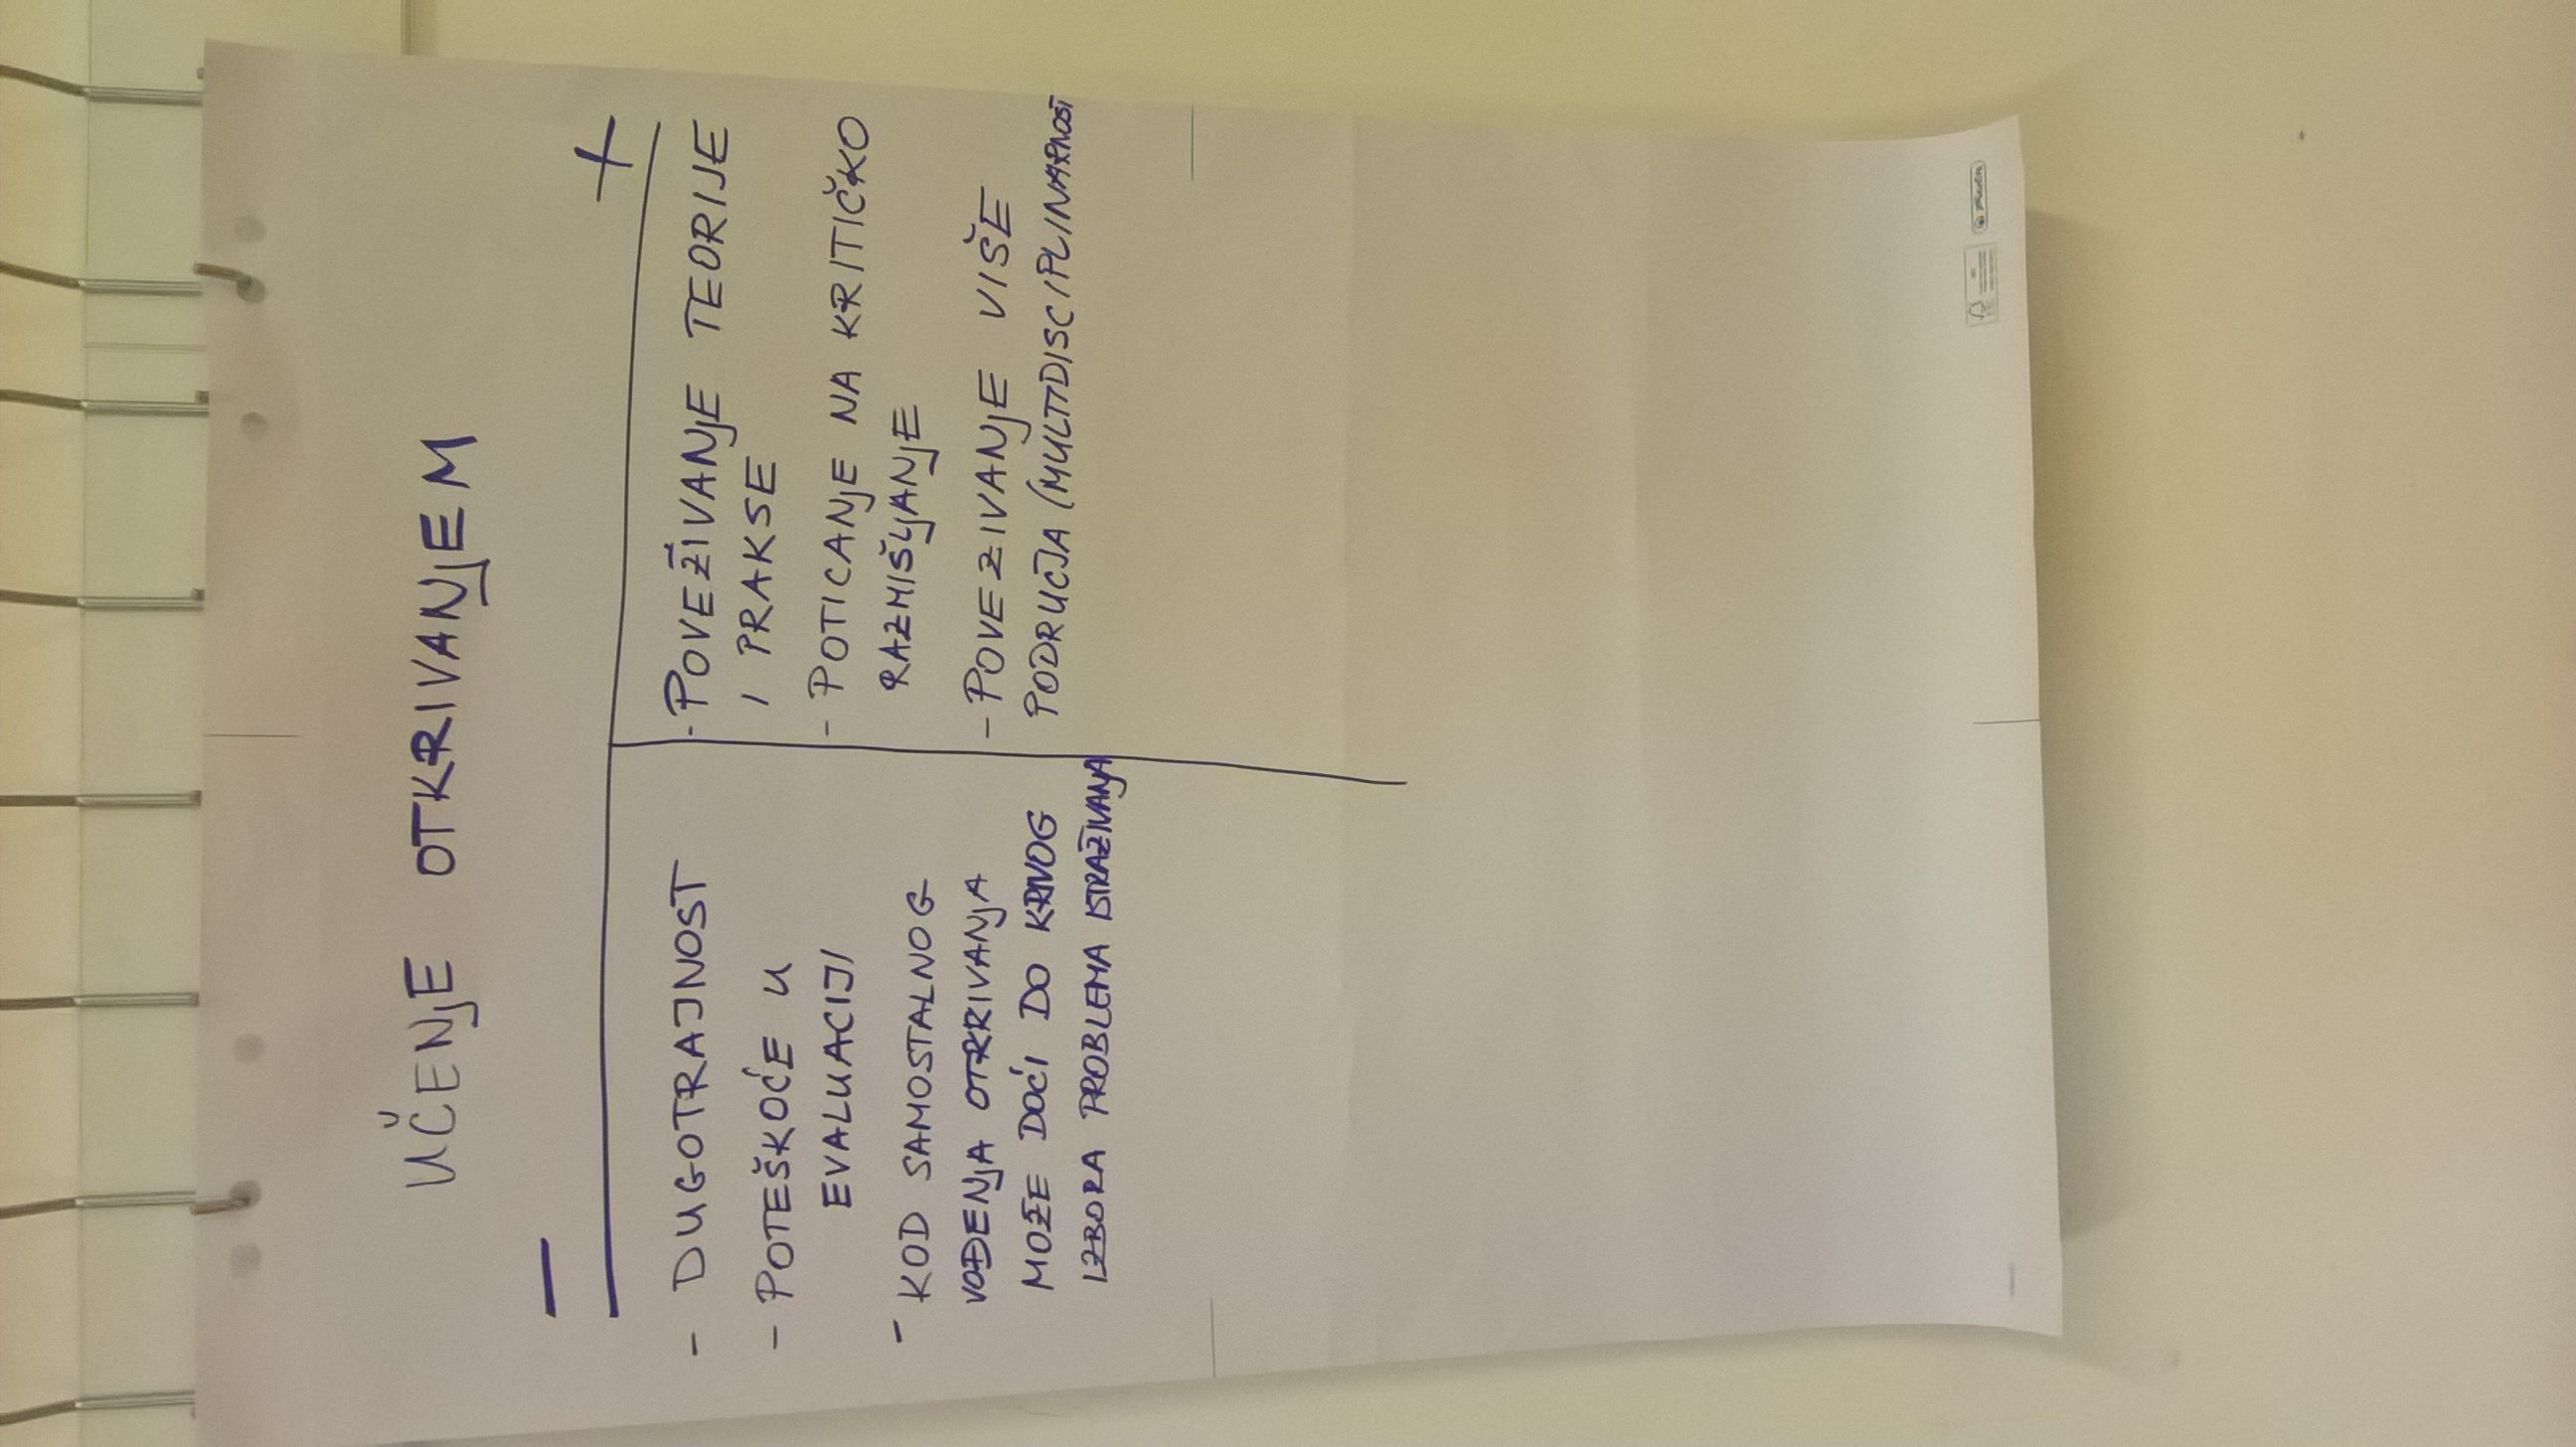 UČENJE OTKRIVANJEM
–
+
- DUGOTRAJNOST
- POTEŠKOĆE U
EVALUACIJI
- KOD SAMOSTALNOG
VOĐENJA OTKRIVANJA
MOŽE DOĆI DO KRIVOG
IZBORA PROBLEMA ISTRAŽIVANJA
- POVEZIVANJE TEORIJE
I PRAKSE
- POTICANJE NA KRITIČKO
RAZMIŠLJANJE
- POVEZIVANJE VIŠE
PODRUČJA (MULTIDISCIPLINARNOST